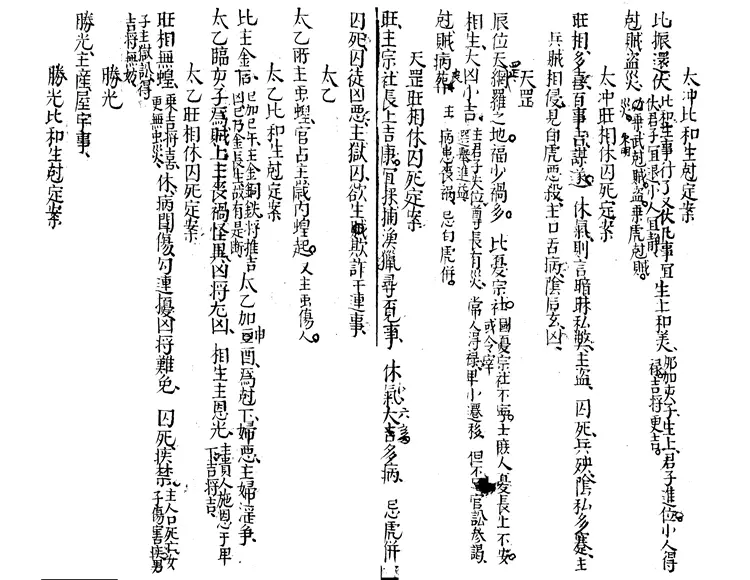 太冲比和生尅定案
比振還伏 比和生事行了又伏凡事宜伏君子宜退小人宜静 生上和美 加亥子生上君子進位小人得禄吉将更吉
尅賊盗災 乘武尅賊盗乘虎尅賊
太冲旺相休囚死定案
旺相多喜百事吉謀遂 休氣則言暗昧私弊主盗 囚死兵殃陰私多蹇主
兵賊相侵見白虎惡殺主口舌病陰后玄凶
天罡
辰位天網羅之地福少禍多 比憂宗社 國憂宗社不寧士庶人憂長上不安
相生大凶小吉 主君子失位尊長有災常人得禄卑小遷移 但不 官訟參謁
尅賊病葬 主病患喪禍忌白虎併
天罡旺相休囚死定案
旺主宗社長上吉康宜採捕漁獵尋覓事 休氣大吉多病 忌虎併
囚死囚徒凶惡主獄囚欲生賊欺詐干連事
太乙
太乙所主虫蝗官占主歲内蝗起又主虫傷人
太乙比和生尅定案
比主金 加巳午主金銅鉄将推吉凶巳乃金長生故有是断 太乙加申酉為尅下婦惡主婦淫争
太乙臨亥子為賊上主喪禍怪異凶将尤凶 相生主恩光 主貴人施恩于卑下吉将吉
太乙旺相休囚死定案
旺相無蝗 乘吉将喜更無虫災 休病聞傷勾連擾凶将難免 囚死疾禁 主人口死亡女子傷害疾男子主獄訟得吉将無妨
勝光
勝光主産屋宇事
勝光比和生尅定案